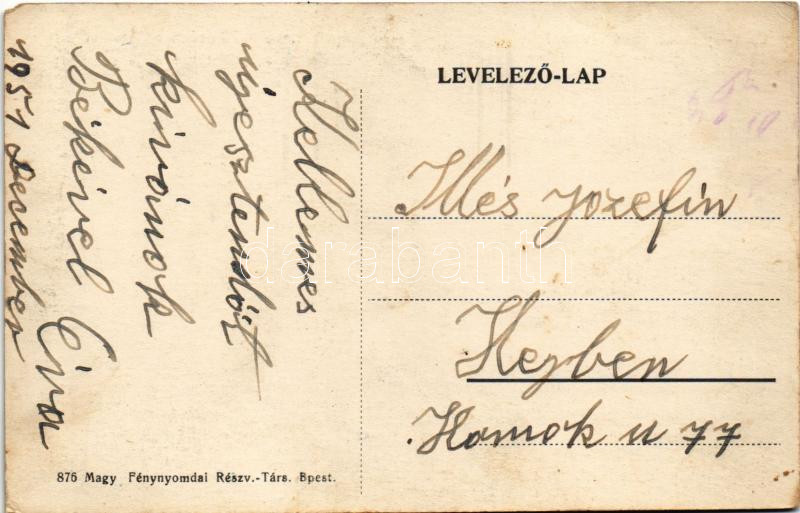 LEVELEZŐ-LAP
Kellemes
újesztendőt
kívánok
Békével Éva
1951 December
Illés Jozefin
Homok u 77
876 Magy Fénynyomdai Részv.-Társ. Bpest.
darabanth